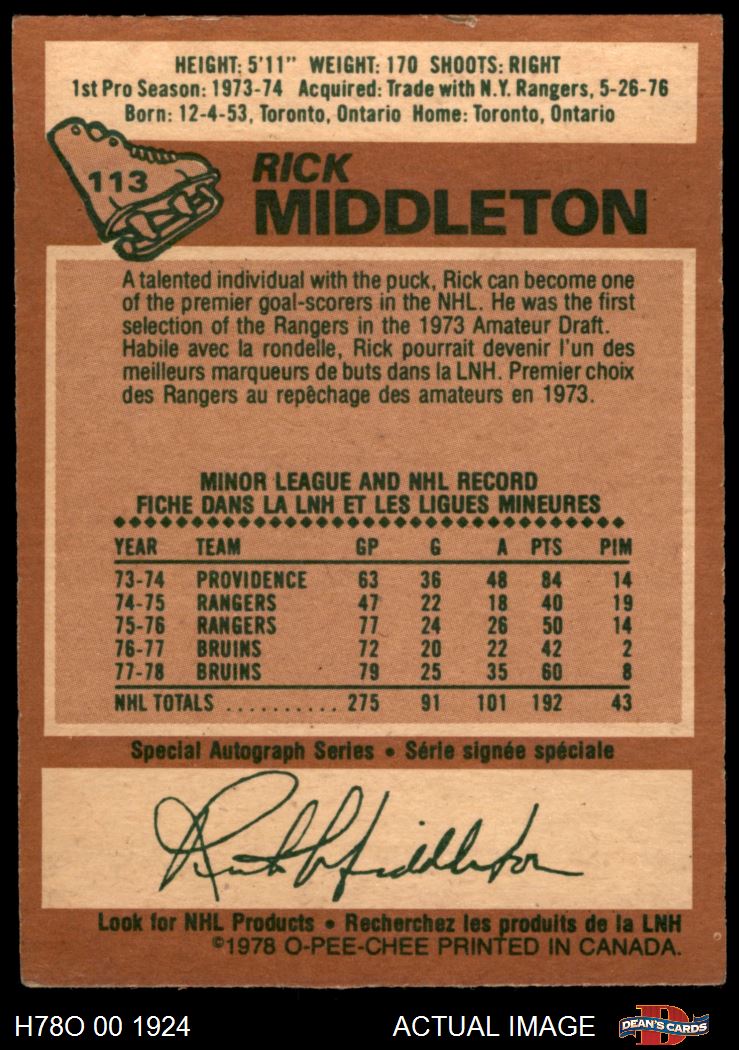 HEIGHT: 5'11" WEIGHT: 170 SHOOTS: RIGHT
1st Pro Season: 1973-74 Acquired: Trade with N.Y. Rangers, 5-26-76
Born: 12-4-53, Toronto, Ontario Home: Toronto, Ontario
113
RICK
MIDDLETON
A talented individual with the puck, Rick can become one
of the premier goal-scorers in the NHL. He was the first
selection of the Rangers in the 1973 Amateur Draft.
Habile avec la rondelle, Rick pourrait devenir l'un des
meilleurs marqueurs de buts dans la LNH. Premier choix
des Rangers au repêchage des amateurs en 1973.
MINOR LEAGUE AND NHL RECORD
FICHE DANS LA LNH ET LES LIGUES MINEURES
YEAR TEAM GP G A PTS PIM
73-74 PROVIDENCE 63 36 48 84 14
74-75 RANGERS 47 22 18 40 19
75-76 RANGERS 77 24 26 50 14
76-77 BRUINS 72 20 22 42 2
77-78 BRUINS 79 25 35 60 8
NHL TOTALS .......... 275 91 101 192 43
Special Autograph Series • Série signée spéciale
Rick Middleton
Look for NHL Products • Recherchez les produits de la LNH
©1978 O-PEE-CHEE PRINTED IN CANADA.
H78O 00 1924 ACTUAL IMAGE D DEAN'S CARDS